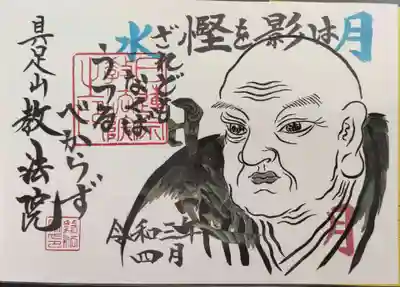 月は影を慳
ざれども
水
なくば
うつる
べからず
具足山 教法院
令和三年
四月
月